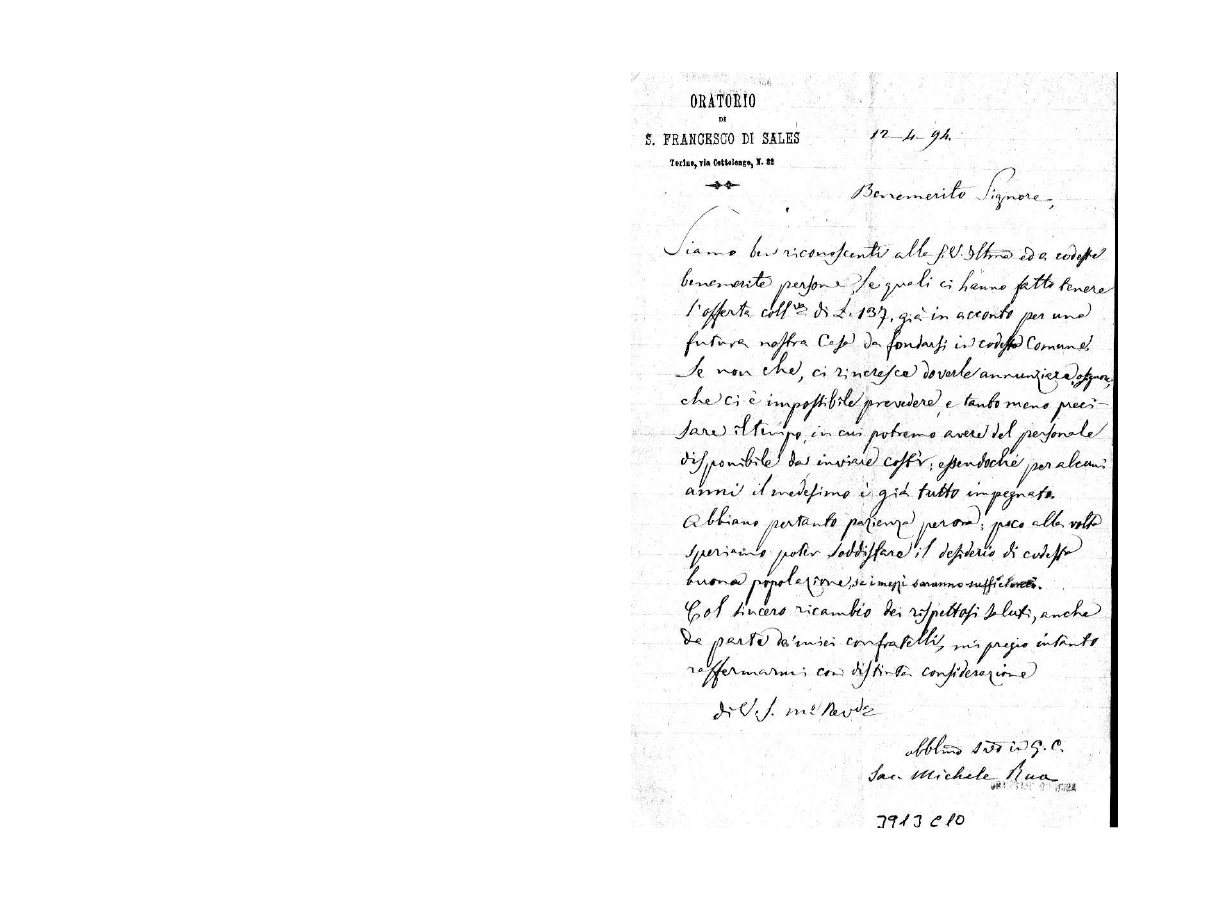 ORATORIO
DI
S. FRANCESCO DI SALES
Torino, via Cottolengo, N. 32
12-4-94.
Benemerito Signore,
Siamo ben riconoscenti alla S.V. Illma ed a codeste
benemerite persone, le quali ci hanno fatto tenere
l'offerta collva di L. 137, già in acconto per una
futura nostra Casa da fondarsi in codesto Comune.
Se non che, ci rincresce doverle annunziare, o Signore,
che ci è impossibile prevedere, e tanto meno preci-
sare il tempo, in cui potremo avere del personale
disponibile da inviare costì; essendochè per alcuni
anni il medesimo è già tutto impegnato.
Abbiano pertanto pazienza per ora; poco alla volta
speriamo poter soddisfare il desiderio di codesta
buona popolazione, se i mezzi saranno sufficienti.
Col sincero ricambio dei rispettosi saluti, anche
da parte de' miei confratelli, mi pregio intanto
raffermarmi con distinta considerazione
di V. S. mo Revda
obblmo svo in G. C.
Sac. Michele Rua
3913 C10